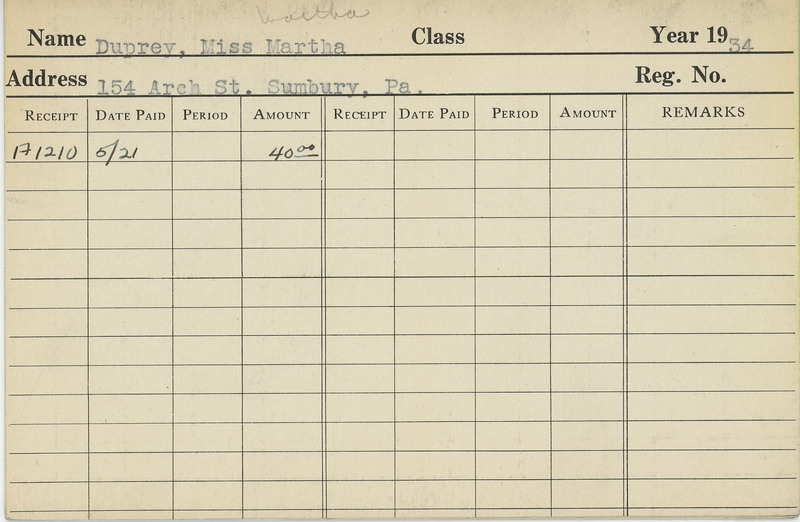 Martha
Name Duprey, Miss Martha Class Year 1934
Address 154 Arch St. Sumbury, Pa. Reg. No.
RECEIPT DATE PAID PERIOD AMOUNT RECEIPT DATE PAID PERIOD AMOUNT REMARKS
171210 5/21 40.00